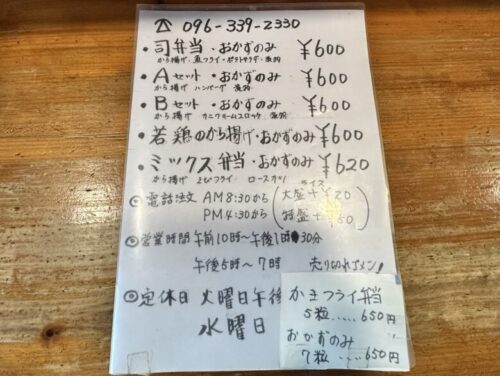 ☎ 096-339-2330
・司弁当・おかずのみ ¥600
から揚げ・魚フライ・ポテトサラダ・漬物
・Aセット・おかずのみ ¥600
から揚げ ハンバーグ 漬物
・Bセット・おかずのみ ¥600
から揚げ カニクリームコロッケ 漬物
・若鶏のから揚げ・おかずのみ ¥600
・ミックス弁当・おかずのみ ¥620
から揚げ えびフライ ロースカツ
◎電話注文 AM8:30から
PM4:30から
ライス
大盛+¥20
特盛+¥50
◎営業時間 午前10時〜午後1時30分
午後5時〜7時 売り切れゴメン!
◎定休日 火曜日午後
水曜日
かきフライ弁当
5粒.....650円
おかずのみ
7粒.....650円